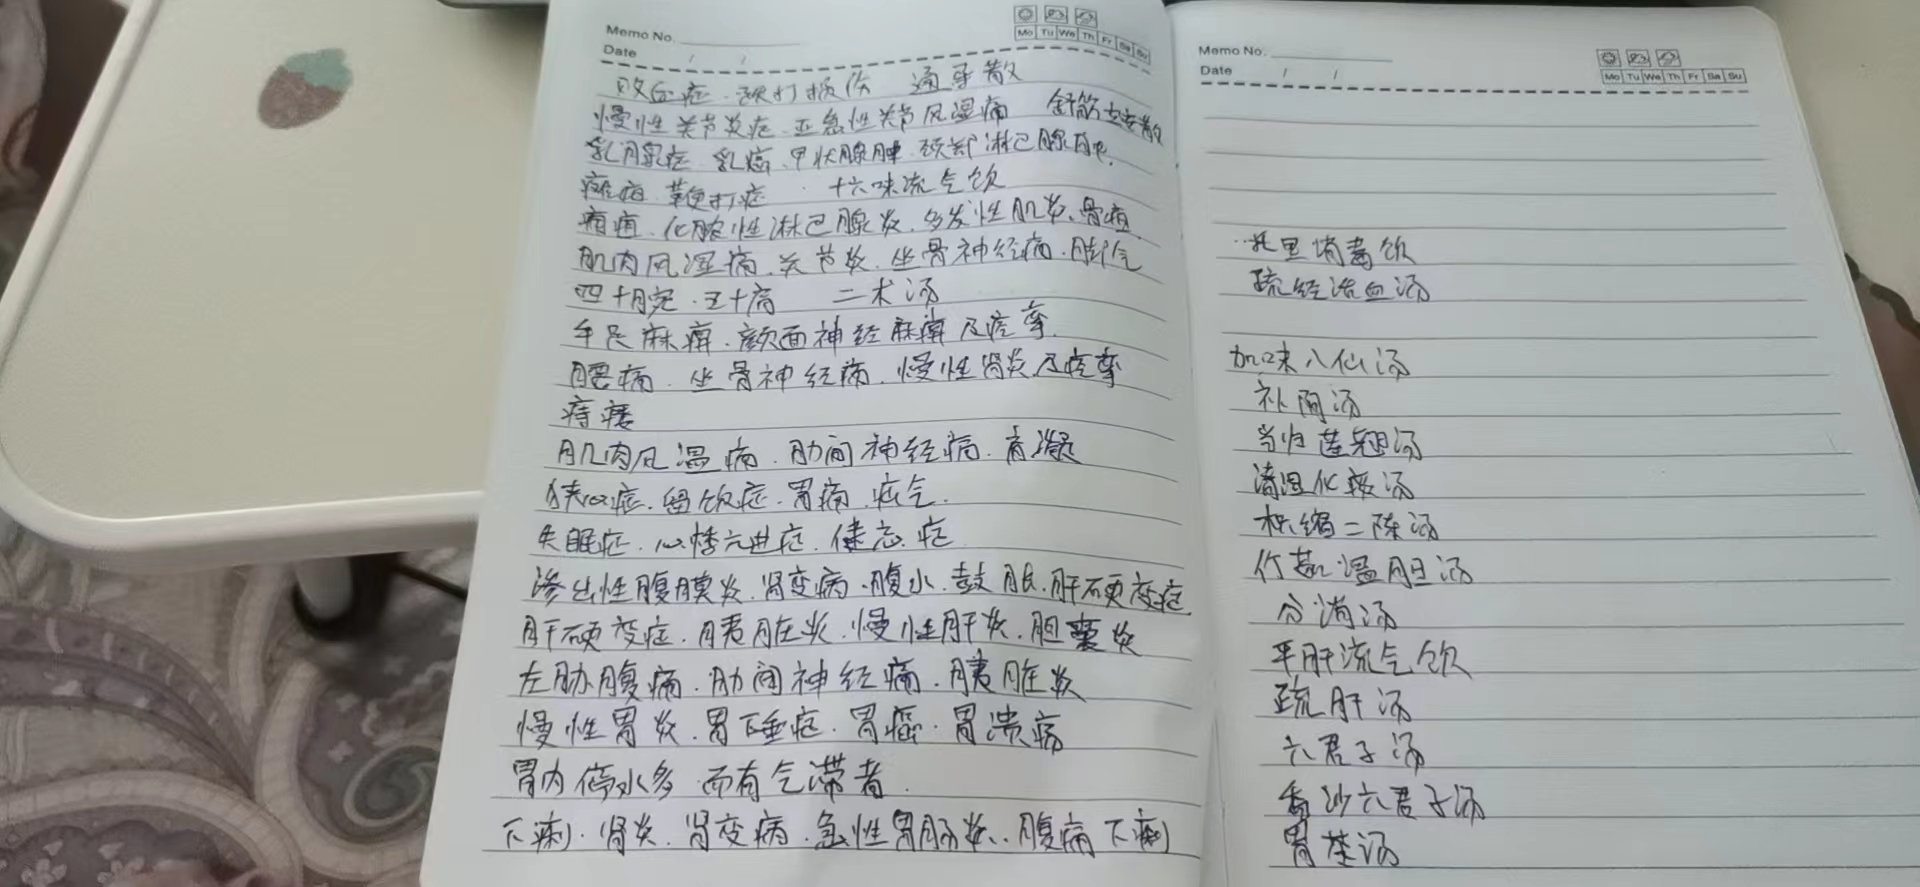 Memo No.
Date / /
Mo Tu We Th Fr Sa Su
败血症.跌打损伤 通导散
慢性关节炎症.亚急性关节风湿痛 舒筋立安散
乳腺症.乳癌.甲状腺肿.颈部淋巴腺肿.
瘫痪.鞭打症. 十六味流气饮
痈疽.化脓性淋巴腺炎.多发性肌炎、骨疽
肌肉风湿痛.关节炎.坐骨神经痛.脚气
四十腕.五十肩 二术汤
手足麻痹.颜面神经麻痹及痉挛.
腰痛.坐骨神经痛.慢性肾炎及痉挛
痔瘘
肌肉风湿痛.肋间神经痛.肩凝
狭心症.留饮症.胃痛.疝气.
失眠症.心悸亢进症.健忘症
渗出性腹膜炎.肾变病.腹水.鼓胀.肝硬变症
肝硬变症.胰脏炎.慢性肝炎.胆囊炎
左胁腹痛.肋间神经痛.胰脏炎
慢性胃炎.胃下垂症.胃癌.胃溃疡
胃内停水多而有气滞者.
下痢.肾炎.肾变病.急性胃肠炎..腹痛下痢
Memo No.
Date / /
Mo Tu We Th Fr Sa Su
托里消毒饮
疏经活血汤
加味八仙汤
补阴汤
当归莲翘汤
清湿化痰汤
枳缩二陈汤
竹茹温胆汤
分消汤
平肝流气饮
疏肝汤
六君子汤
香沙六君子汤
胃苓汤